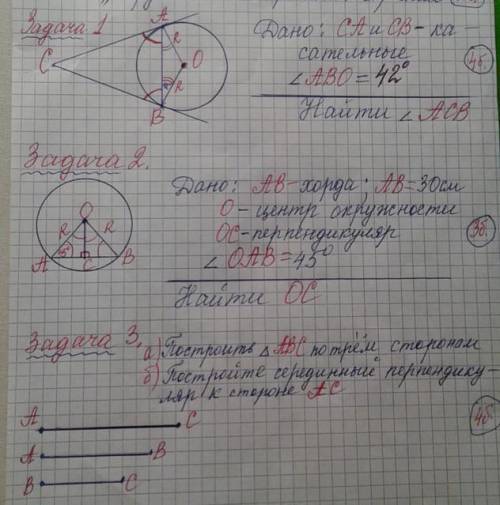 Задача 1
Дано: CA и CB - ка-
сательные
∠ABO = 42°
Найти ∠ACB
4б.
A
R
C
O
R
B
Задача 2.
Дано: AB - хорда; AB = 30см
O - центр окружности
OC - перпендикуляр
∠OAB = 45°
Найти OC
3б.
O
R R
A 45° C B
Задача 3.
а) Построить △ABC по трём сторонам
б) Постройте серединный перпендику-
ляр к стороне AC
4б.
A C
A B
B C